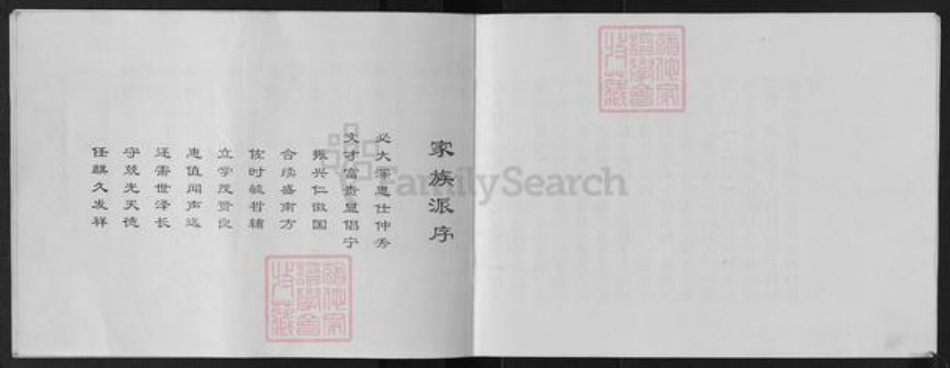 家族派序
必大泽惠仕仲秀
文才富贵显倡宁
振兴仁徽国
合续盛南方
佐时毓哲辅
立学茂贤良
惠值闻声远
还需世泽长
守兢光天德
任骐久发祥
FamilySearch